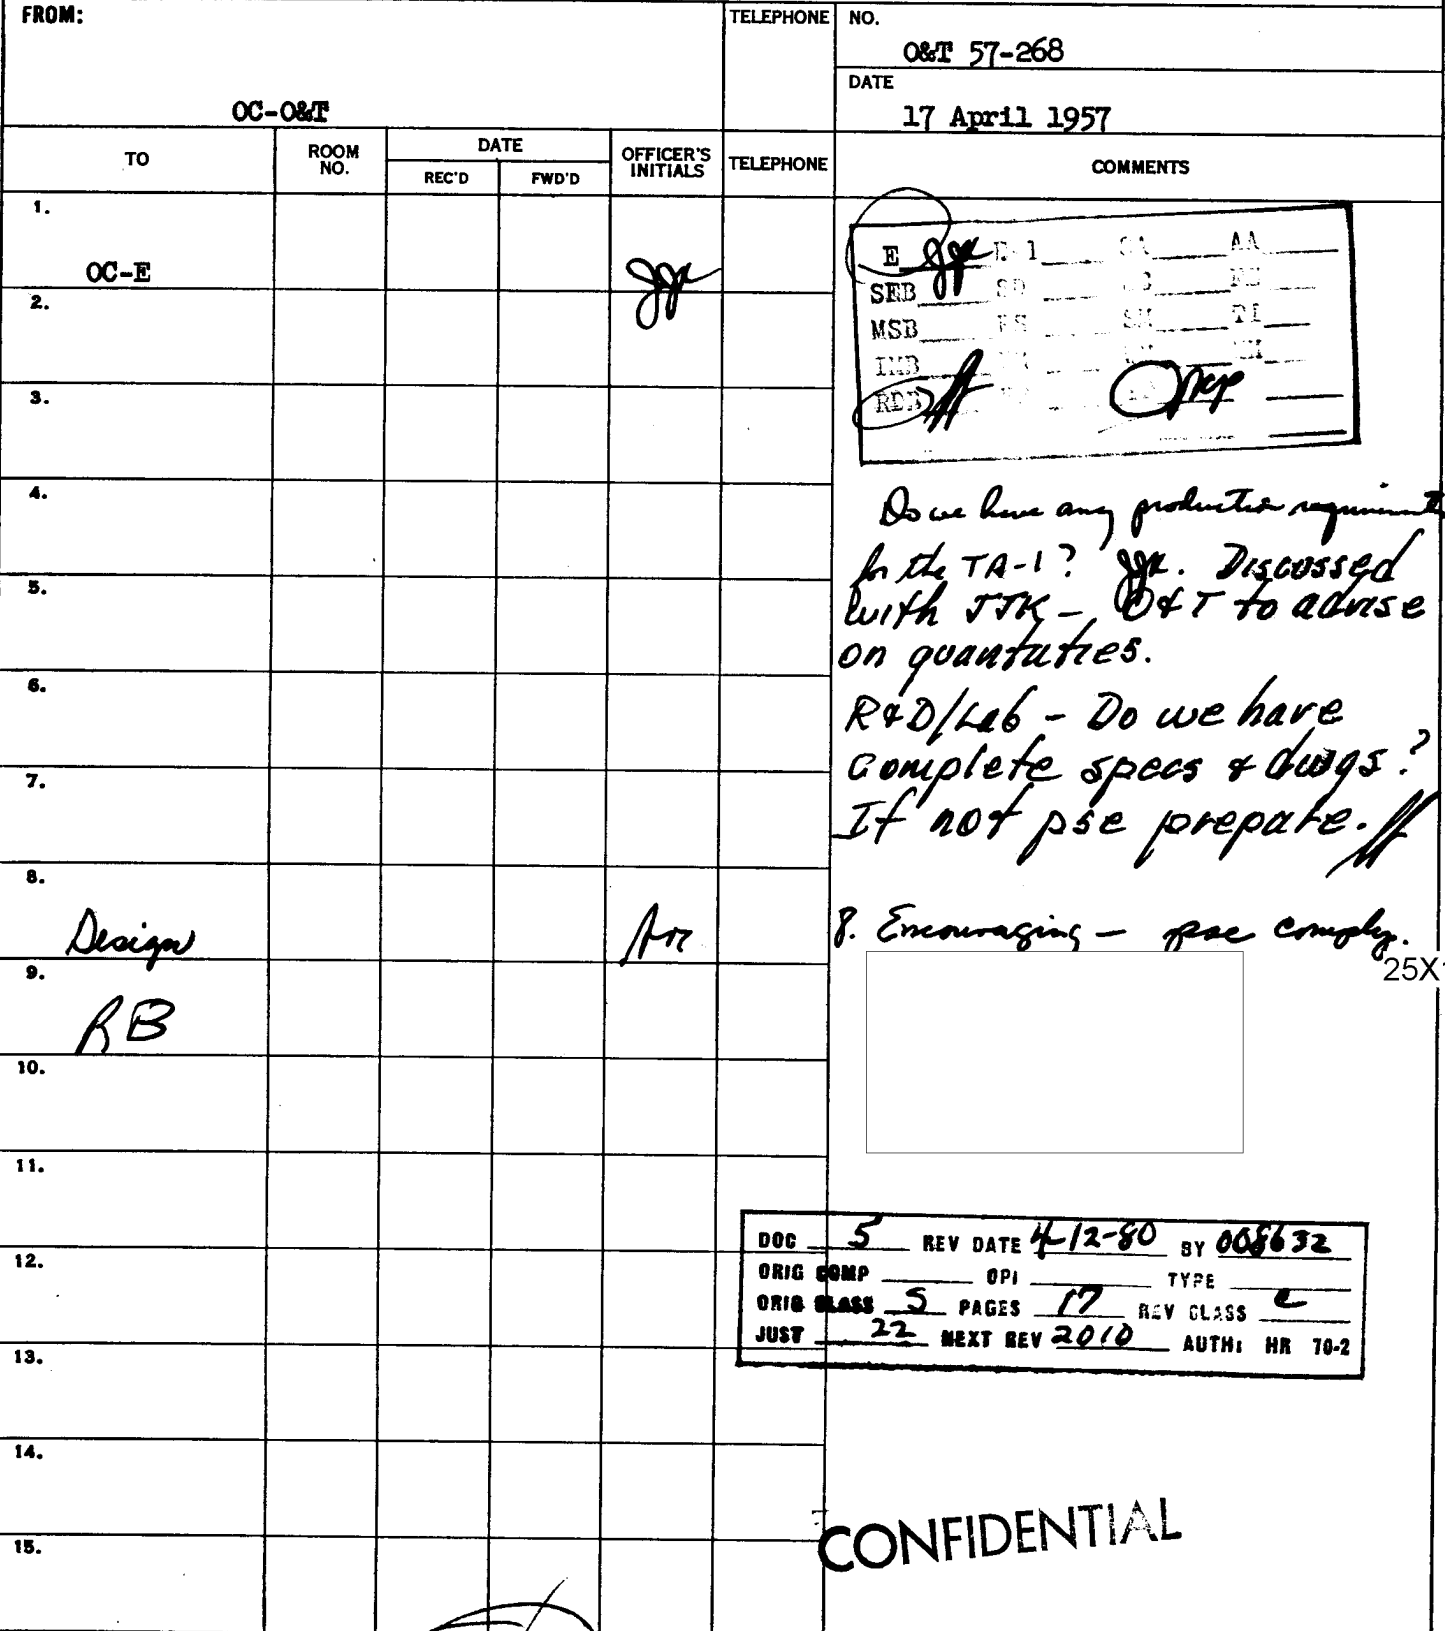 FROM:
TELEPHONE
NO.
O&T 57-268
DATE
17 April 1957
OC-O&T
TO
ROOM NO.
DATE
REC'D
FWD'D
OFFICER'S INITIALS
TELEPHONE
COMMENTS
1.
OC-E
2.
3.
4.
5.
6.
7.
8.
Design
9.
RB
10.
11.
12.
13.
14.
15.
E AA
SEB
MSB
RDB
Do we have any production requirements
for the TA-1? Discussed
with JJK - O&T to advise
on quantities.
R&D/Lab - Do we have
complete specs & dwgs?
If not pse prepare.
8. Encouraging - pse comply.
25X1
DOC 5 REV DATE 4-12-80 BY 008632
ORIG COMP OPI TYPE
ORIG CLASS S PAGES 17 REV CLASS C
JUST 22 NEXT REV 2010 AUTH: HR 70-2
CONFIDENTIAL